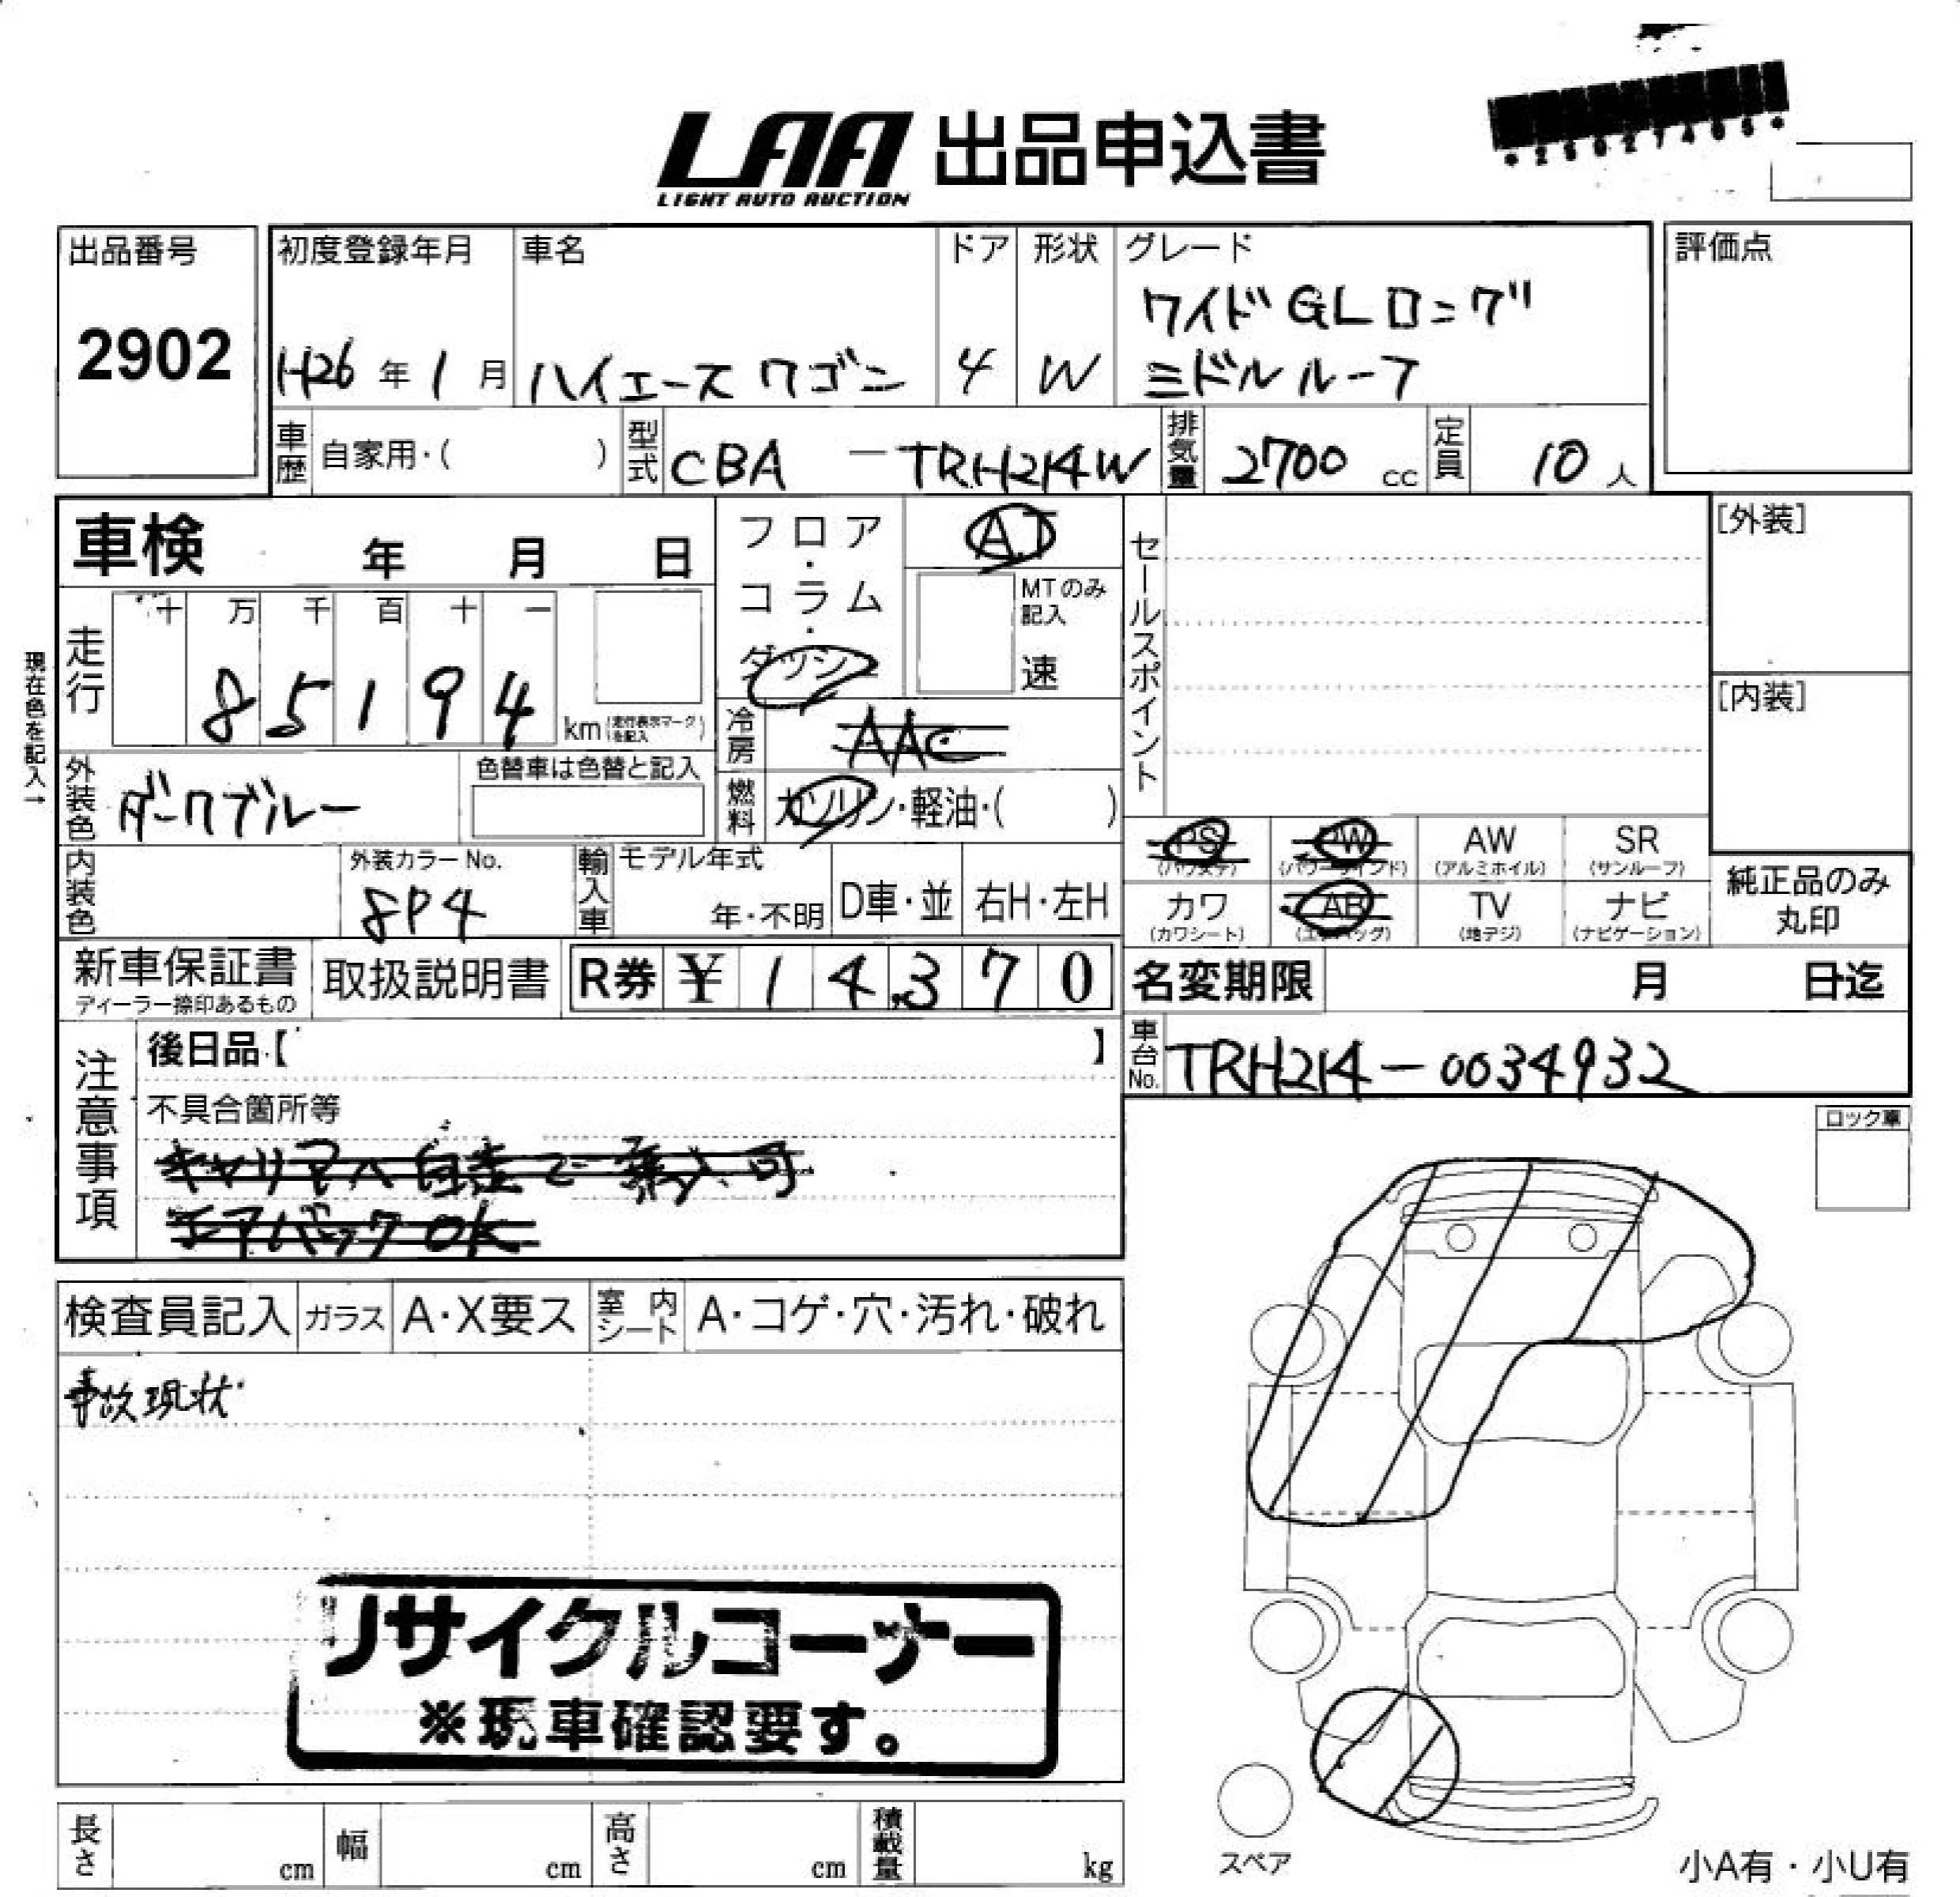 LAA 出品申込書
LIGHT AUTO AUCTION
*25027405*
出品番号
2902
初度登録年月
H26年1月
車名
ハイエース ワゴン
ドア
4
形状
W
グレード
ワイド GL ロング
ミドルルーフ
評価点
車歴 自家用・( )
型式 CBA - TRH214W
排気量 2700 cc
定員 10 人
車検 年 月 日
現在色を記入→
走行
十 万 千 百 十 一
8 5 1 9 4
km (走行表示マークを記入)
フロア・コラム・ダッシュ
AT
MTのみ記入
速
冷房 AAC
燃料 ガソリン・軽油・( )
外装色 ダークブルー
色替車は色替と記入
内装色
外装カラーNo.
8P4
輸入車
モデル年式
年・不明
D車・並
右H・左H
セールスポイント
[外装]
[内装]
PS (パワステ)
PW (パワーウインド)
AW (アルミホイル)
SR (サンルーフ)
カワ (カワシート)
AB (エアバッグ)
TV (地デジ)
ナビ (ナビゲーション)
純正品のみ
丸印
新車保証書
ディーラー捺印あるもの
取扱説明書
R券 ¥ 14,370
名変期限 月 日迄
車台No. TRH214-0034932
注意事項
後日品【 】
不具合箇所等
キャリアへ自走で乗入可
エアバック OK
検査員記入
ガラス A・X要ス
室内シート A・コゲ・穴・汚れ・破れ
事故現状
リサイクルコーナー
※現車確認要す。
ロック車
スペア
小A有・小U有
長さ cm
幅 cm
高さ cm
積載量 kg